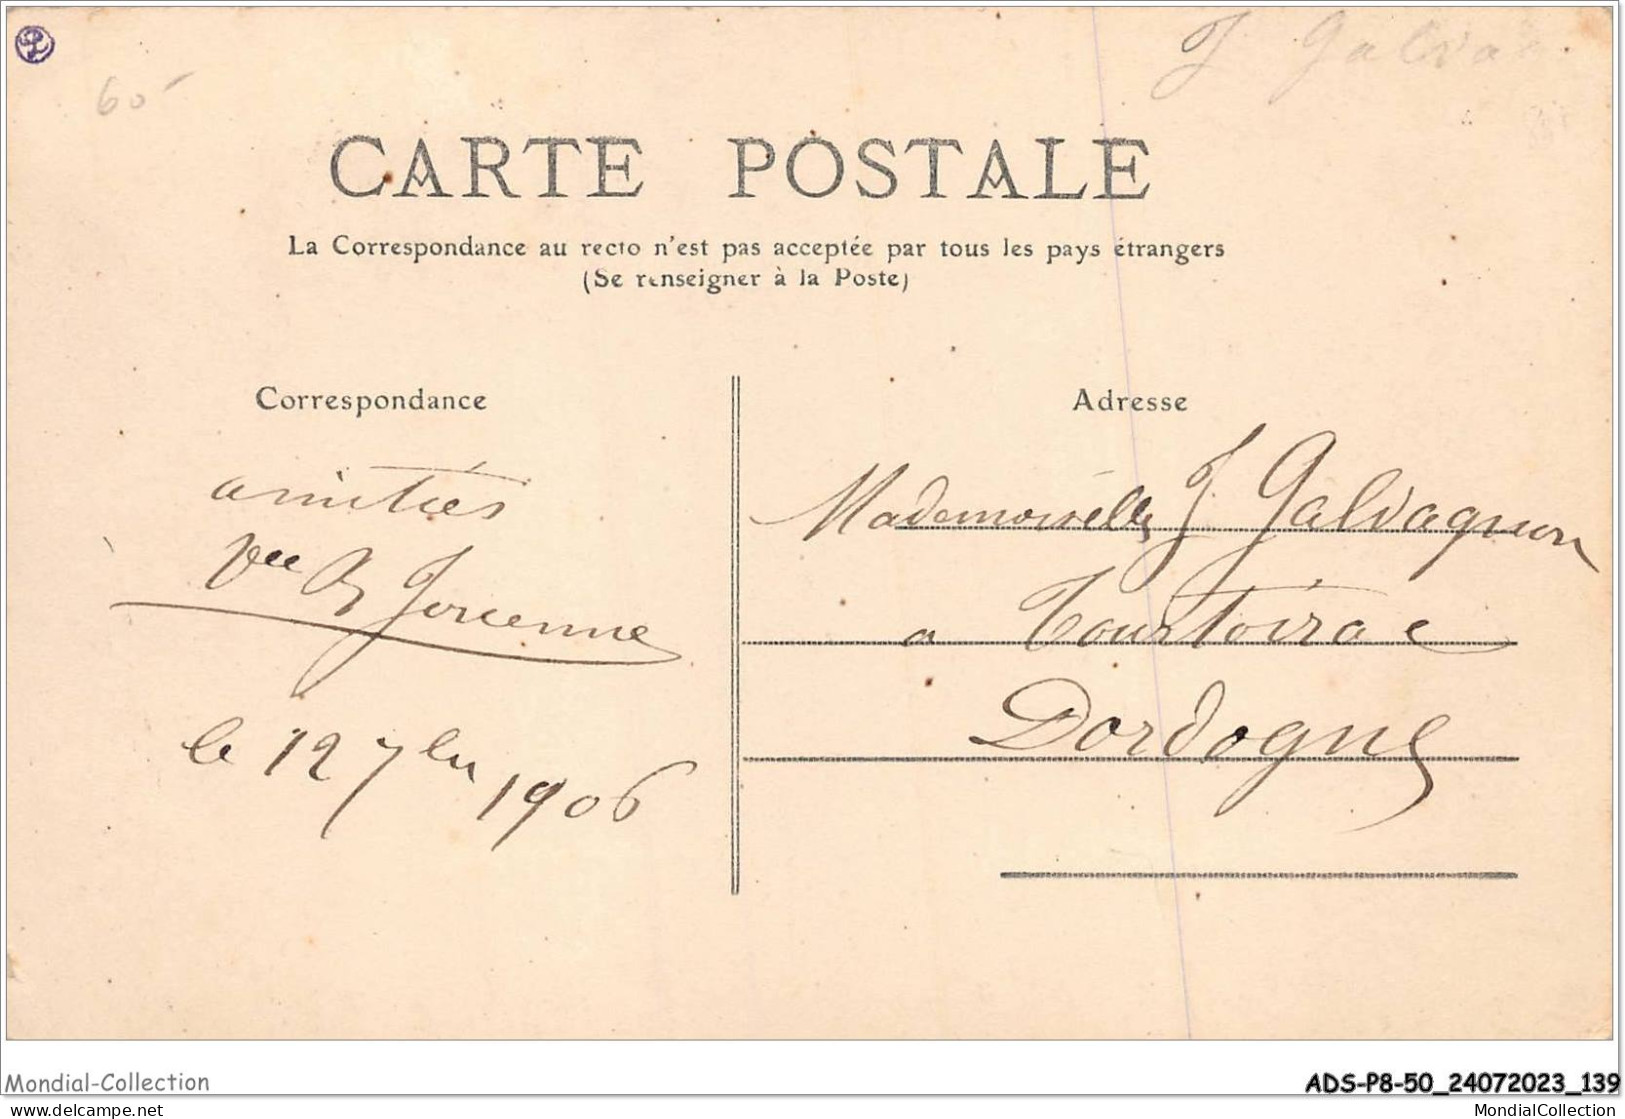 60
J Galva
CARTE POSTALE
La Correspondance au recto n'est pas acceptée par tous les pays étrangers
(Se renseigner à la Poste)
Correspondance
Adresse
amitiés
Vve
le 12 7bre 1906
Mademoiselle J Galvagnon
a Tourtoirac
Dordogne
Mondial-Collection
ADS-P8-50_24072023_139
www.delcampe.net
MondialCollection